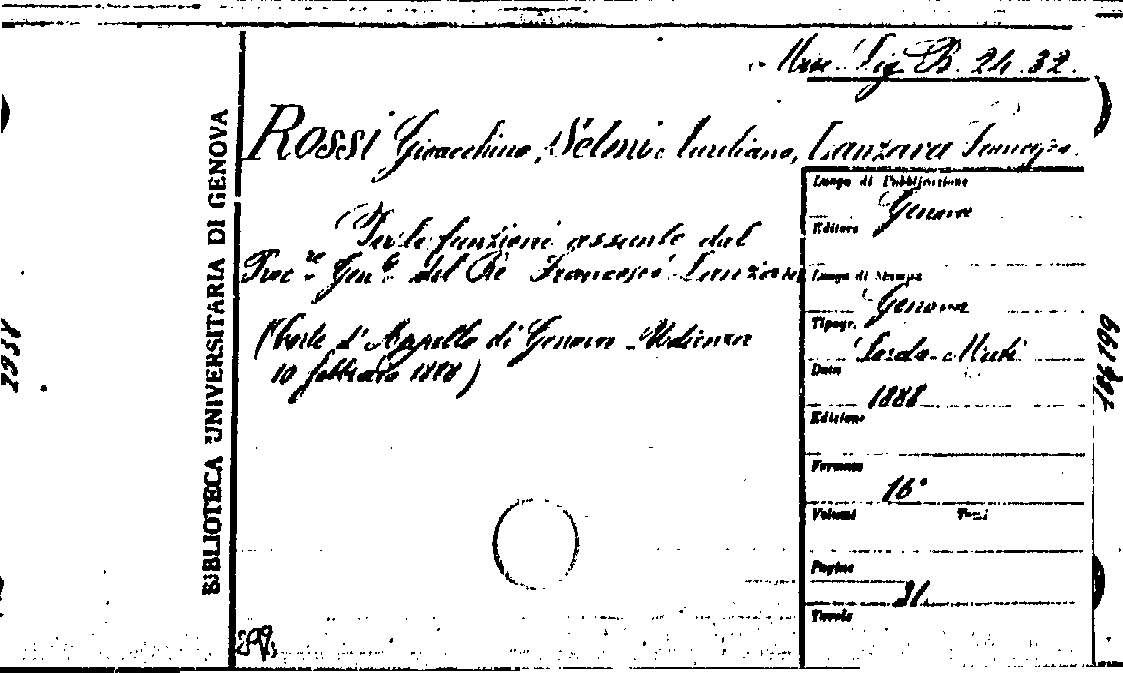 Misc. Lig. B. 24. 32.
Rossi Gioacchino, Selmi Aureliano, Lanzara Francesco.
Per le funzioni assunte dal
Proc.re Gen.le del Re Francesco Lanzara
(Corte d'Appello di Genova - Udienza
10 febbraio 1888)
Luogo di Pubblicazione
Genova
Editore
Luogo di Stampa
Genova
Tipogr.
Sordo-Muti
Data
1888
Edizione
Formato
16°
Volumi Tomi
Pagine
31
Tavole
BIBLIOTECA UNIVERSITARIA DI GENOVA
2938